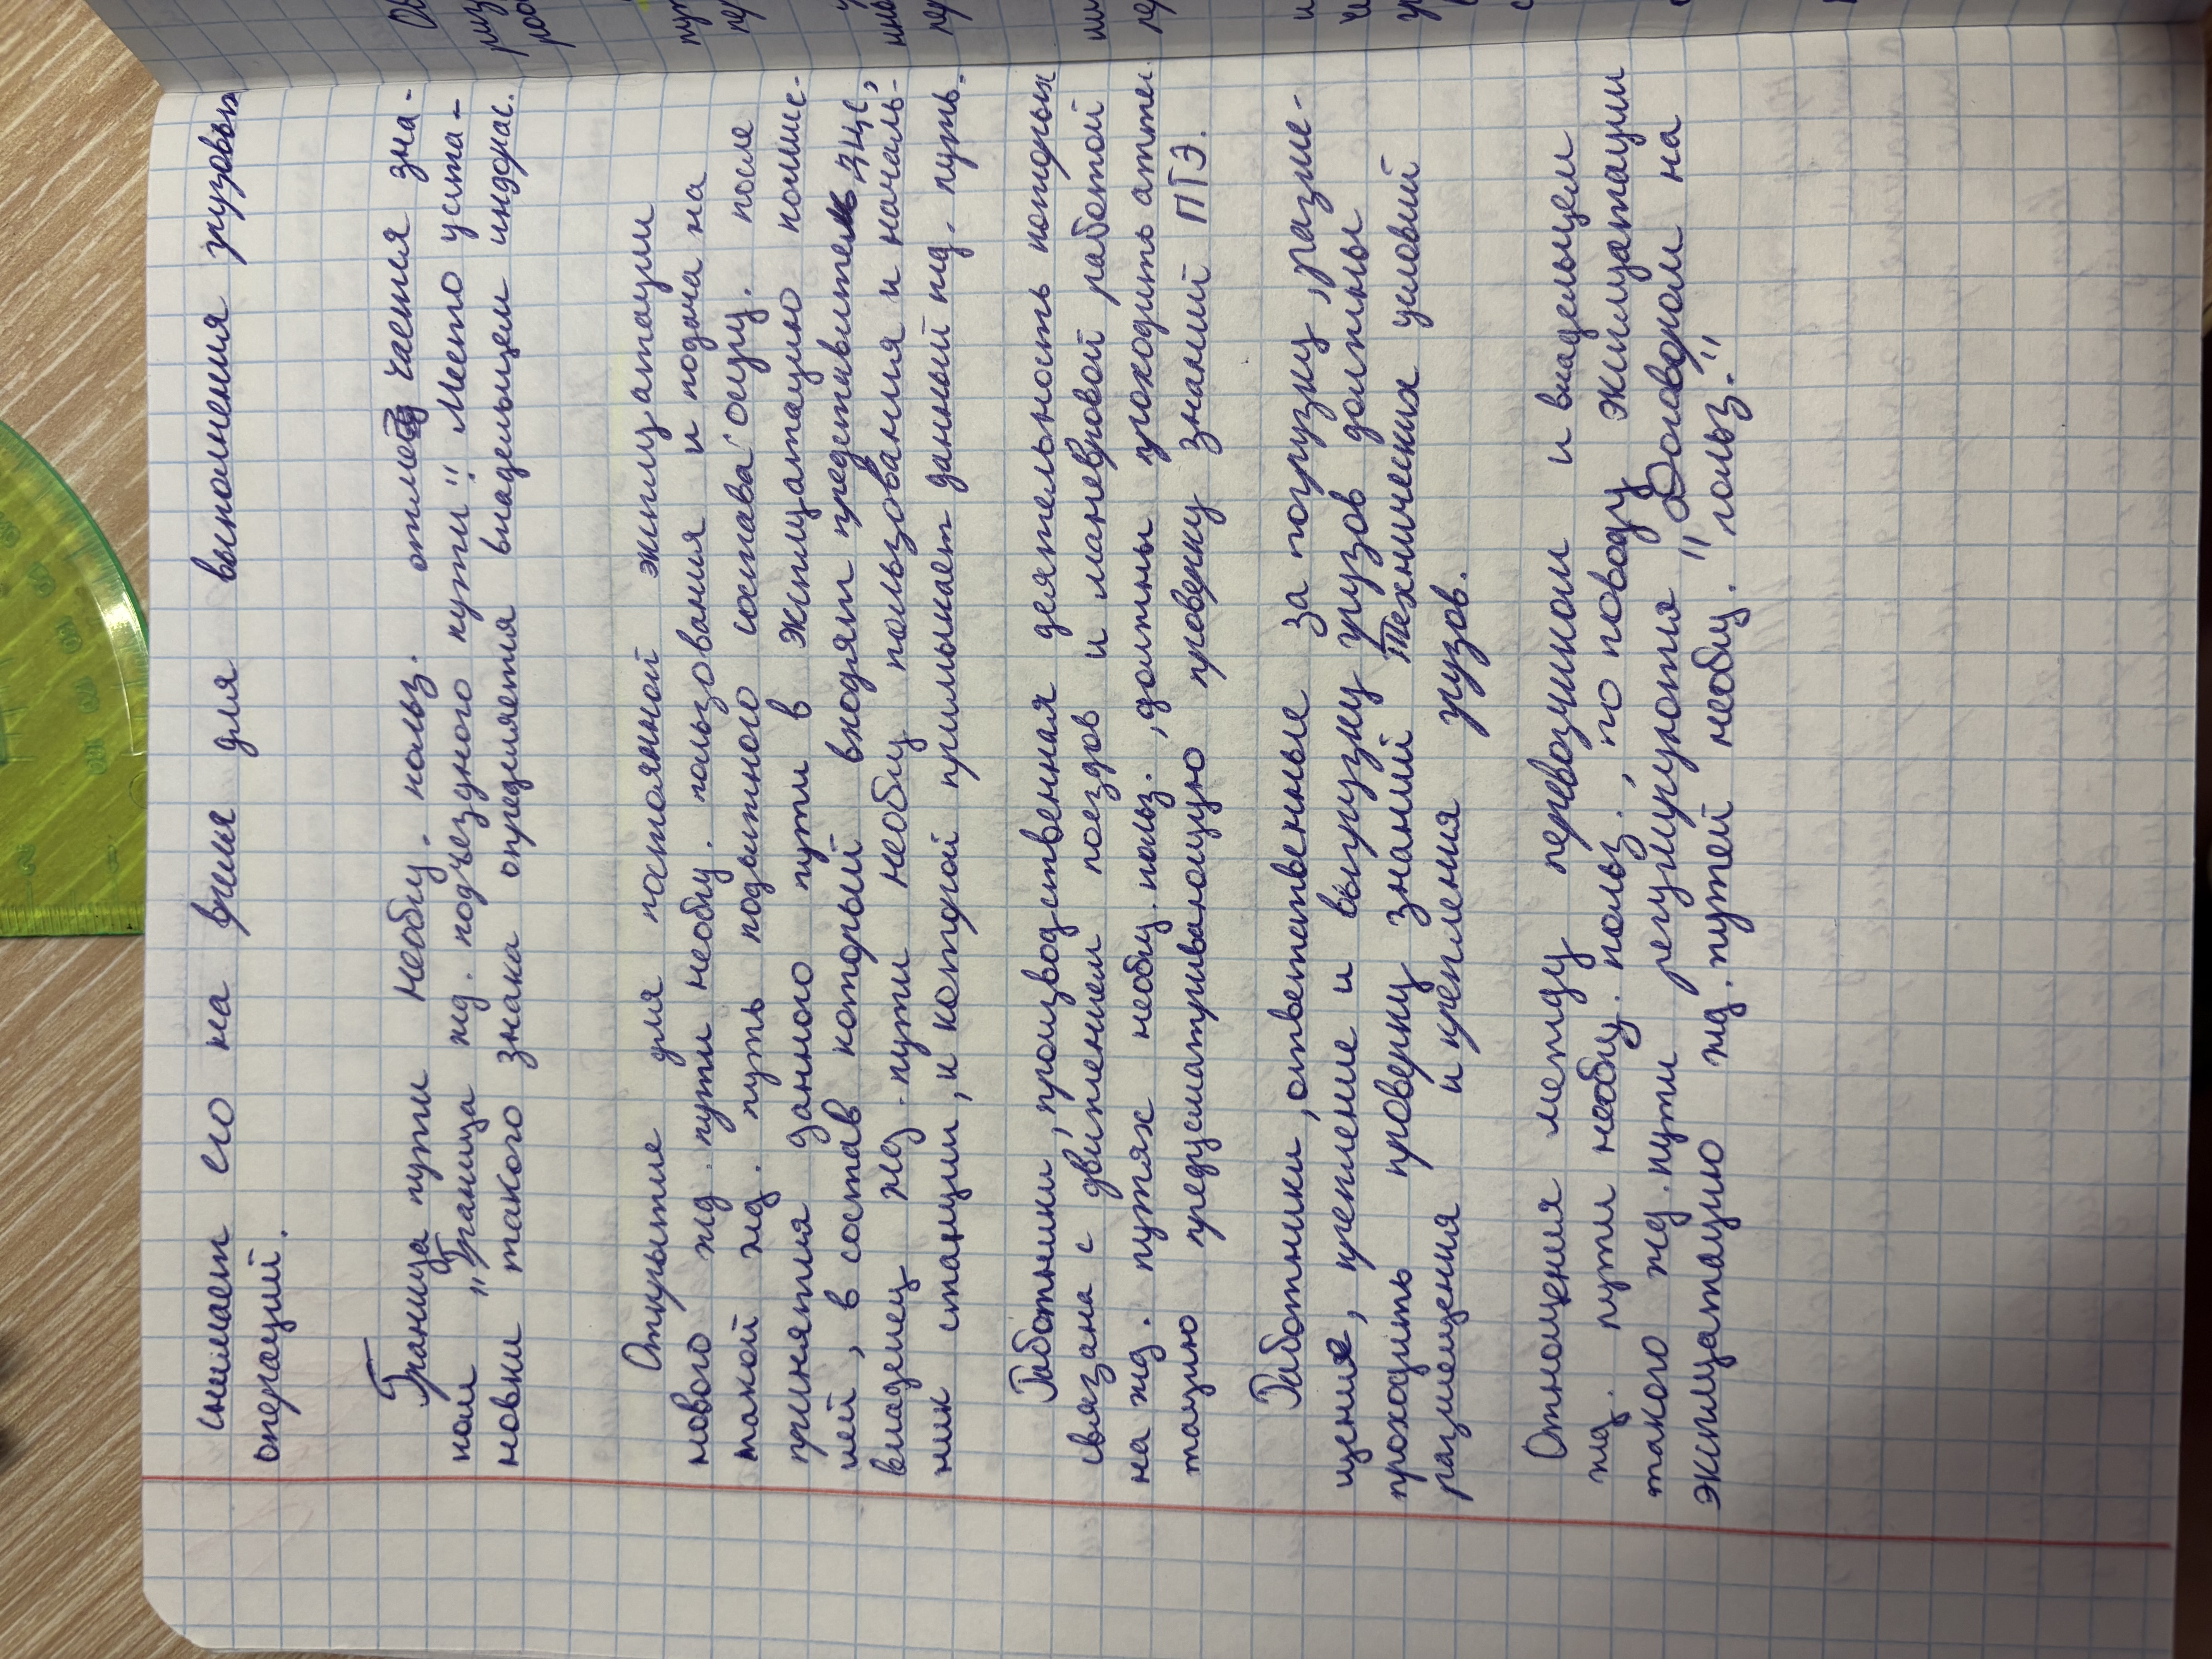 снимает его на время для выполнения грузовых
операций.
Граница пути необщ. польз. отмеч чается зна-
ком „Граница жд. подъездного пути". Место уста-
новки такого знака определяется владельцем инфрас.
Открытие для постоянной эксплуатации
нового жд. пути необщ. пользования и подача на
такой жд. путь подвижного состава осущ. после
принятия данного пути в эксплуатацию комис-
ией, в состав который входят представитель ЯЦЕ,
владелец жд. пути необщ пользования и началь-
ник станции, к которой примыкает данный жд. путь.
Работники, производственная деятельность которых
связана с движением поездов и маневровой работой
на жд. путях необщ. польз., должны проходить аттес
тацию предусматривающую проверку знаний ПТЭ.
Работники, ответственные за погрузку, разме-
щение, крепление и выгрузку грузов должны
проходить проверку знаний Технических условий
размещения и крепления грузов.
Отношения между перевозчиком и владельцем
жд. пути необщ. польз., по поводу эксплуатации
такого жд. пути регулируются " Договором на
эксплуатацию жд. путей необщ. польз."